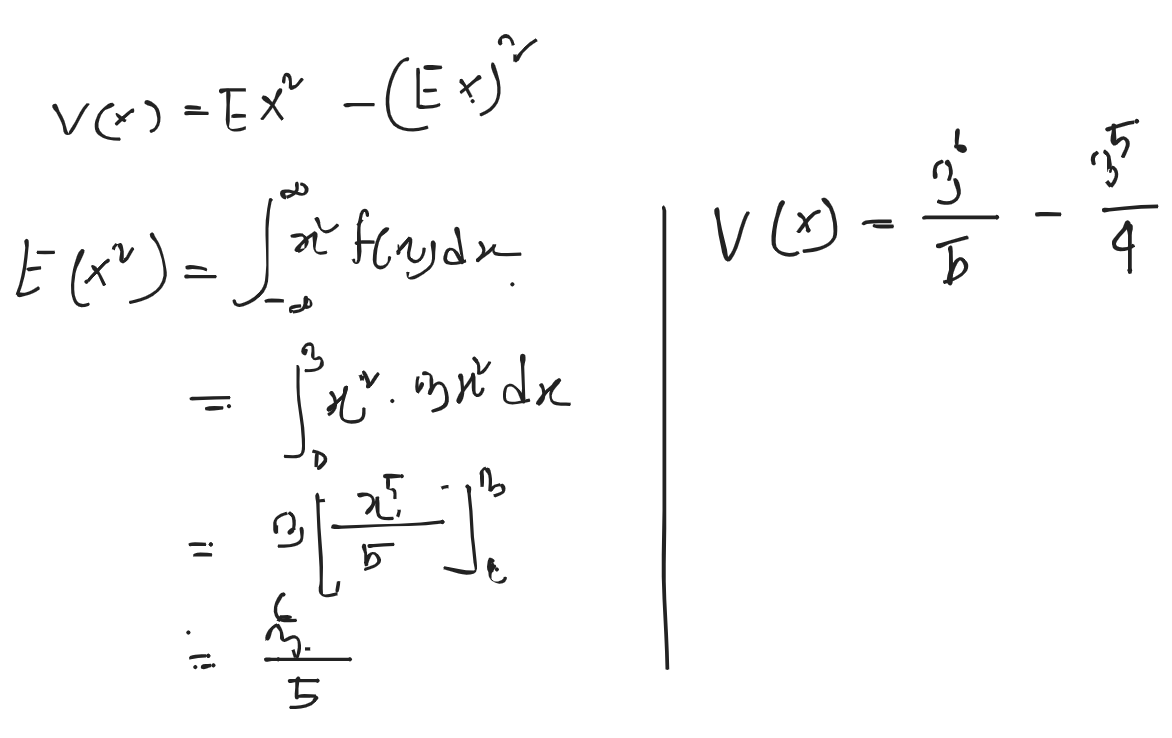 V(x) = EX² - (Ex)²
E(x²) = ∫_{-∞}^{∞} x² f(x) dx.
= ∫_0^3 x² · 3x² dx
= 3 [x⁵/5]_0^3
= 3⁶/5
V(x) = 3⁶/5 - 3⁵/4